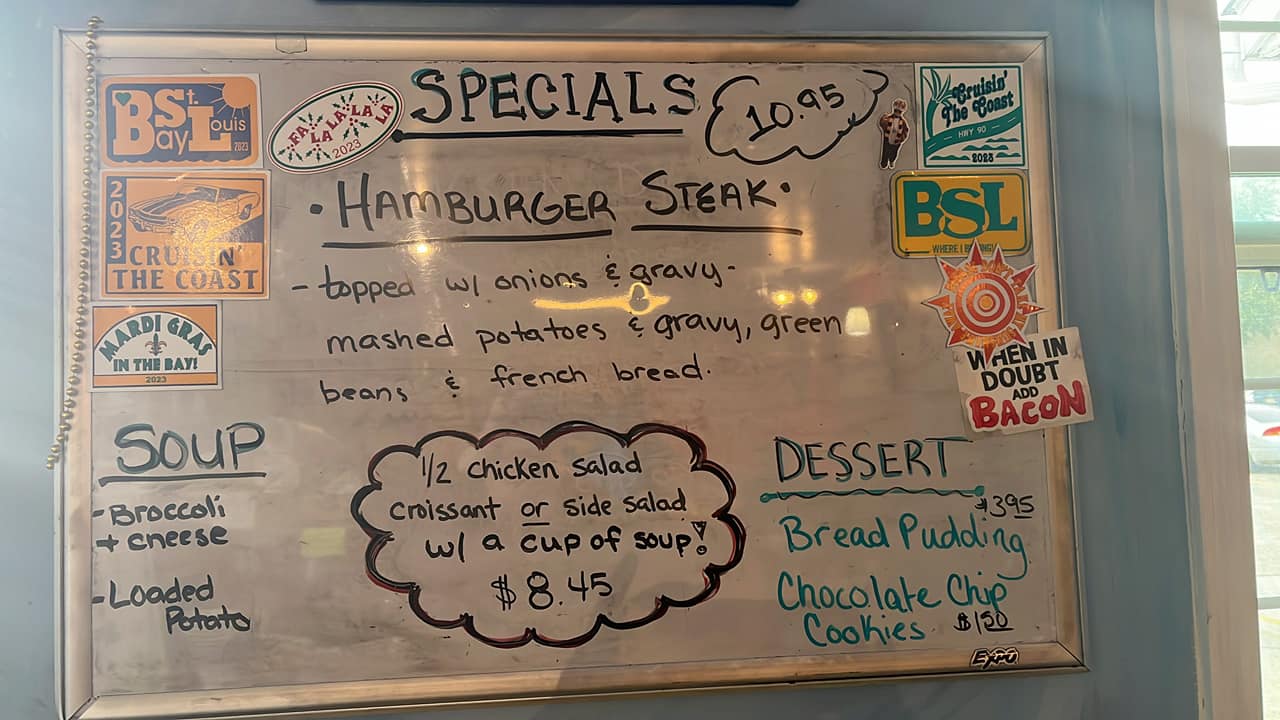 SPECIALS
10.95
• HAMBURGER STEAK •
- topped w/ onions & gravy -
mashed potatoes & gravy, green
beans & french bread.
SOUP
- Broccoli
+ cheese
- Loaded
Potato
1/2 chicken salad
croissant or side salad
w/ a cup of soup!
$8.45
DESSERT
$3.95
Bread Pudding
Chocolate Chip
Cookies $1.50
Bay St. Louis
2023
FA LA LA LA LA
2023
2023
CRUISIN'
THE COAST
MARDI GRAS
IN THE BAY!
2023
Cruisin'
The Coast
HWY 90
2023
BSL
WHERE I
WHEN IN
DOUBT
ADD
BACON
EXPO